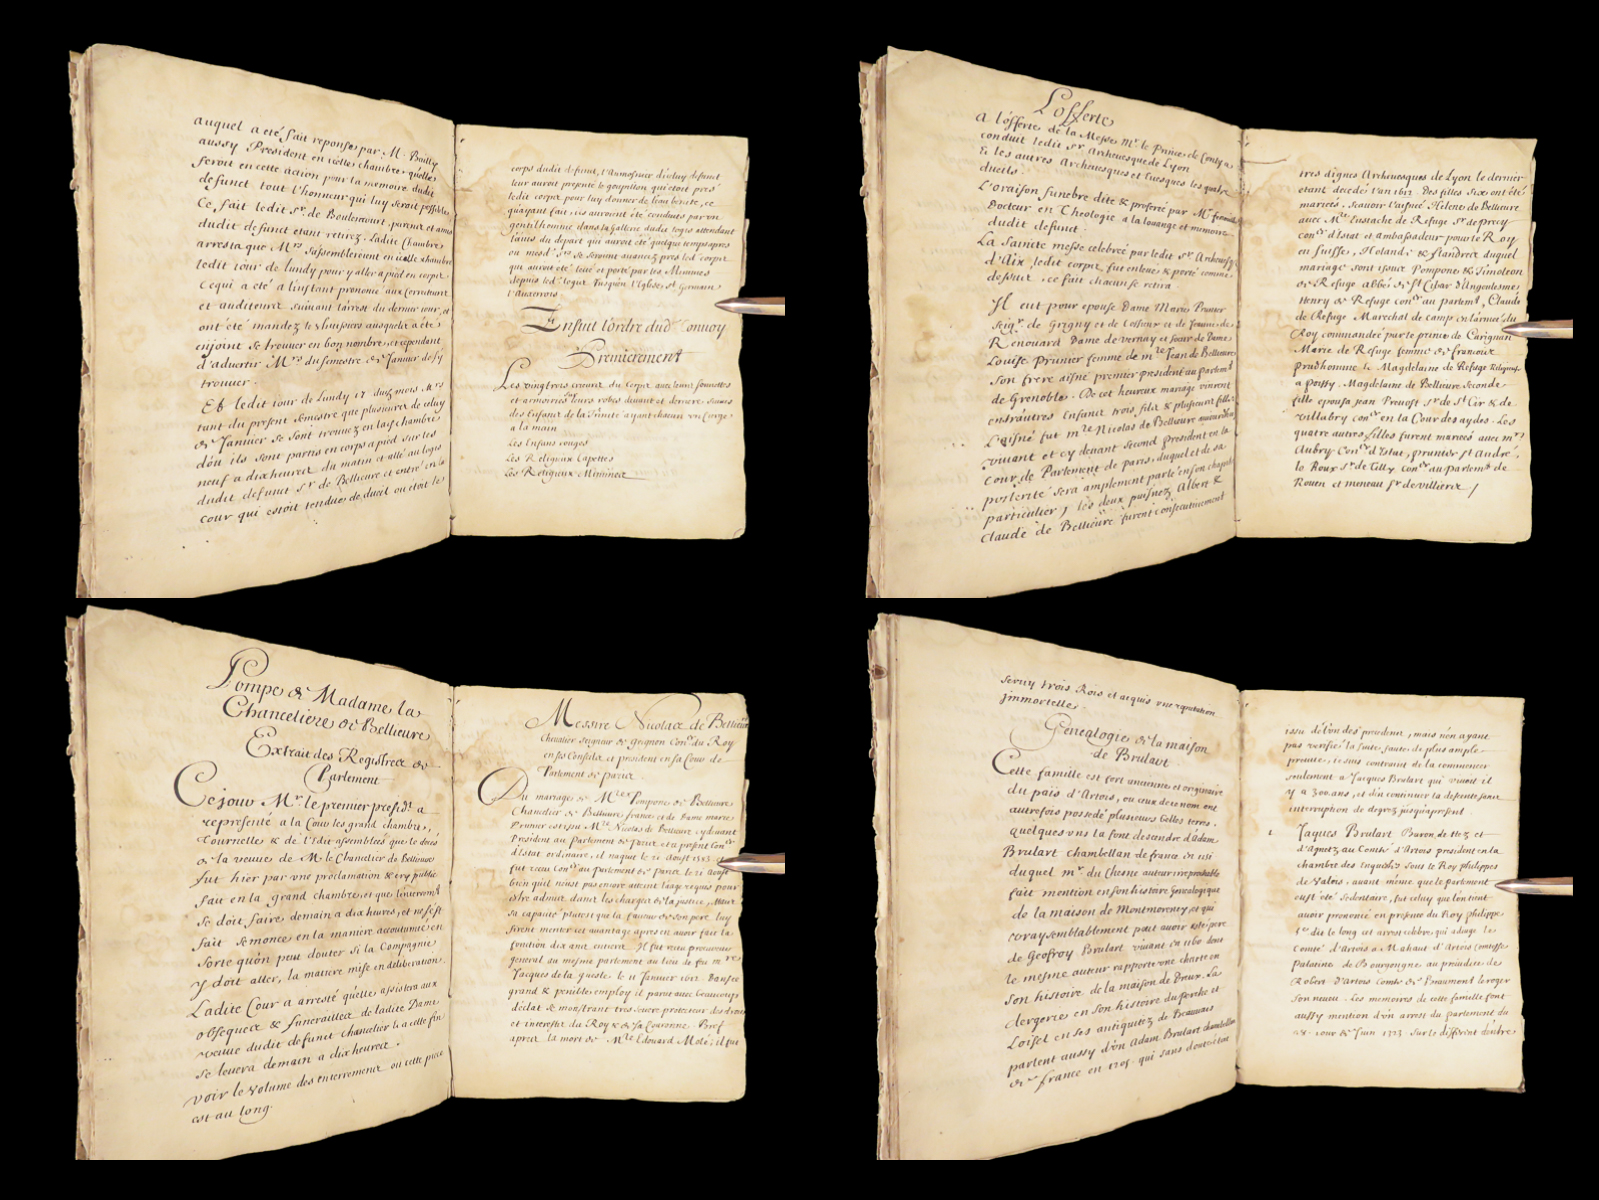 auquel a eté fait reponse par M. Bailly
aussy President en icelle chambre, quelle
feroit en cette action pour la memoire dudit
defunct tout l'honneur qui luy seroit possible
Ce fait ledit Sr. de Boulencourt, parent et amis
dudit defunct etant retirez. Ladite Chambre
arresta que Mrs s'assembleroient en icelle chambre
ledit iour de lundy pour y aller a pied en corps.
Ce qui a eté a l'instant prononcé aux Correcteurs
et auditeurs suivant l'arrest du dernier iour, et
ont été mandez les huissiers ausquels a été
enjoint se trouuer en bon nombre, et cependant
d'aduertir Mrs du semestre de Januier de s'y
trouuer.
Et ledit iour de Lundy 17 dud. mois Mrs
tant du present semestre que plusieurs de celuy
de Januier se sont trouuez en la chambre
d'ou ils sont partis en corps a pied sur les
neuf a dix heures du matin et allé au logis
dudit defunct Sr de Bellieure et entré en la
cour qui estoit tendue de dueil ou etoit le
corps dudit defunct, l'Aumosnier d'iceluy defunct
leur auroit presenté le goupillon qui etoit pres
ledit corps pour luy donner de l'eau benite, ce
quayant fait, ils auroient eté conduits par un
gentilhomme dans la gallerie dudit logis attendant
l'heure du depart qui auroit eté quelque temps apres
ou mesd. Srs se seroient auancez pres led. corps
qui auroit eté leué et porté par les Minimes
depuis led. logis jusqu'en l'Eglise St Germain
l'Auxerrois
Ensuit l'ordre dud Conuoy
Premierement
Les vingt trois crieurs du Corps auec leurs sonnettes
et armoiries sur leurs robes deuant et derriere suiuis
des Enfans de la Trinité ayant chacun un Cierge
a la main
Les Enfans rouges
Les Religieux Capettes
Les Religieux Minimes
L'offerte
A l'offerte de la Messe Mr. le Prince de Conty a
conduit ledit Sr Archeuesque de Lyon
& les autres Archeuesques et Euesques les quatre
dueils.
L'oraison funebre dite & proferé par Mr
Docteur en Theologie a la louange et memoire
dudit defunct.
La Saincte messe celebreé par ledit Sr Archeuesq.
d'Aix, ledit corps fut enleué & porté comme
dessus, ce fait chacun se retira.
Il eut pour epouse Dame Marie Prunier
Seigr. de Grigny et de
Renouard Dame de vernay et soeur de Dame
Louise Prunier femme de mre Jean de Bellieure
son frere aisné premier president au parlemt
de Grenoble. De cet heureux mariage vinrent
entrautres Enfans trois fils & plusieurs filles
L'aisné fut mre Nicolas de Bellieure aujourdhuy
viuant et cy deuant second president en la
Cour de Parlement de Paris, duquel et de sa
posterité sera amplement parlé en son chapitre
particulier, les deux puisnez Albert &
Claude de Bellieure furent consecutiuement
tres dignes Archeuesques de Lyon le dernier
etant decedé l'an 1612. Des filles Six ont été
mariées. Scauoir l'aisneé Helene de Bellieure
auec Mre Eustache de Refuge Sr de precy
coner d'Estat et ambassadeur pour le Roy
en Suisse, Holande & flandres duquel
mariage sont issus Pompone & Timoleon
de Refuge abbé de St Cibar d'Angoulesme
Henry de Refuge coner au parlemt, Claude
de Refuge Marechal de camp en l'armeé du
Roy commandée par le prince de Carignan
Marie de Refuge femme de francois
prudhomme & Magdelaine de Refuge Religieuse
a poissy. Magdelaine de Bellieure seconde
fille epousa jean Preuost Sr de St Cir & de
villabry coner en la Cour des aydes. Les
quatre autres filles furent marieés auec mrs
Aubry Coner d'Estat, prunier St André,
le Roux Sr de Tilly Coner au parlemt de
Rouen et meneau Sr de villiers /
Pompe de Madame la
Chanceliere de Bellieure
Extrait des Registres de
Parlement
Ce jour Mr. le premier presidt a
representé a la Cour les grand chambre,
Tournelle & de l'Edit assembleés que le decés
de la veuue de Mr. le Chancelier de Bellieure
fut hier par une proclamation & cry public
sau en la grand chambre, et que l'enterremt
se doit faire demain a dix heures, et ne s'est
fait semonce en la maniere accoutumeé en
sorte qu'on peut douter si la Compagnie
y doit aller, la matiere mise en deliberation.
Ladite Cour a arresté quelle assistera aux
obseques & funerailles de ladite Dame
veuue dudit defunct chancelier & a cette fin
se leuera demain a dix heures.
voir le volume des enterremens ou cette piece
est au long.
Messire Nicolas de Bellieure
Cheualier seigneur de Grignon Coner. du Roy
en ses Conseils, et president en sa Cour de
Parlement de Paris
Du mariage de Mre Pompone de Bellieure
Chancelier de Bellieure france et de Dame marie
Prunier est issu Mre Nicolas de Bellieure, cydeuant
President au Parlement de Paris et a present Coner
d'Estat ordinaire, il naquit le 21 Aoust 1583 et
fut receu Coner au Parlement de Paris le 21 Aoust
bien quil n'eust pas encore atteint l'aage requis pour
estre admis dans les charges de la justice, Mais
sa capacité plustost que la faueur de son pere luy
firent meriter cet auantage apres en auoir fait la
fonction dix ans entiers. Il fut receu procureur
general au mesme parlement au lieu de feu mre
Jacques de la guesle. le 11 Januier 1612. Dans ce
grand & penible employ il parut auec beaucoup
d'eclat se monstrant tres seuere protecteur des droits
et interests du Roy & de sa Couronne. Bref
apres la mort de Mre Edouard Molé, il fut
seruy trois Rois et acquis une reputation
jmmortelle.
Genealogie de la maison
de Brulart
Cette famille est fort ancienne et originaire
du pais d'Artois, ou ceux de ce nom ont
autrefois possedé plusieurs belles terres.
quelques uns la font descendre d'Adam
Brulart chambellan de france en 1151
duquel mr. du Chesne auteur irreprochable
fait mention en son histoire genealogique
de la maison de Montmorency, et qui
vraysemblablement peut auoir esté pere
de Geofroy Brulart viuant en 1160 dont
le mesme auteur rapporte une charte en
son histoire de la maison de Dreux. La
clergerie en son histoire du perche et
Loisel en ses antiquitez de Beauuais
parlent aussy d'un Adam Brulart chambellan
de france en 1205 qui sans doute étoit
issu de l'un des precedent, mais n'en ayant
pas verifié la suite faute de plus ample
preuue, ie suis contraint de la commencer
seulement a Jacques Brulart qui viuoit il
y a 300 ans, et d'en continuer la descente sans
interruption de degrez jusqu'a present.
1 Jaques Brulart Baron de Hez et
d'Agnetz au Comté d'Artois president en la
chambre des Enquestes sous le Roy philippes
de Valois, auant même que le parlement
eust eté sedentaire, fut celuy que l'on tient
auoir prononcé en presence du Roy philippe
5e dit le long cet arrest celebre qui adiuge le
Comté d'Artois a Mahaut d'Artois Comtesse
Palatine de Bourgongne au preiudice de
Robert d'Artois Comte de Beaumont le roger
son neueu. Les memoires de cette famille font
aussy mention d'un arrest du parlement du
28. iour de Juin 1323 sur le different d'entre